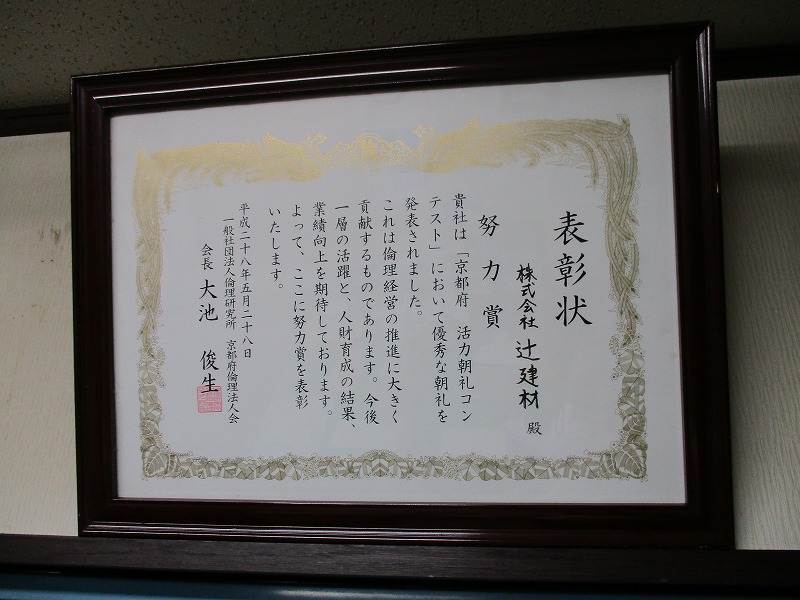 表彰状
株式会社 辻建材 殿
努力賞
貴社は「京都府 活力朝礼コン
テスト」において優秀な朝礼を
発表されました。
これは倫理経営の推進に大きく
貢献するものであります。今後
一層の活躍と、人財育成の結果、
業績向上を期待しております。
よって、ここに努力賞を表彰
いたします。
平成二十八年五月二十八日
一般社団法人倫理研究所 京都府倫理法人会
会長 大池 俊生